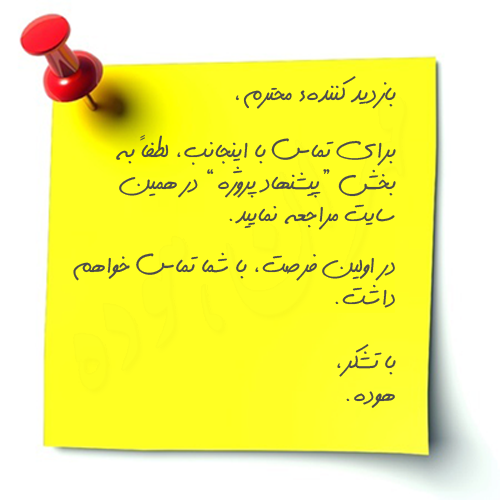 بازدید کننده‌ء محترم،
برای تماس با اینجانب، لطفاً به
بخش ”پیشنهاد پروژه“ در همین
سایت مراجعه نمایید.
در اولین فرصت، با شما تماس خواهم
داشت.
با تشکر،
هوده.